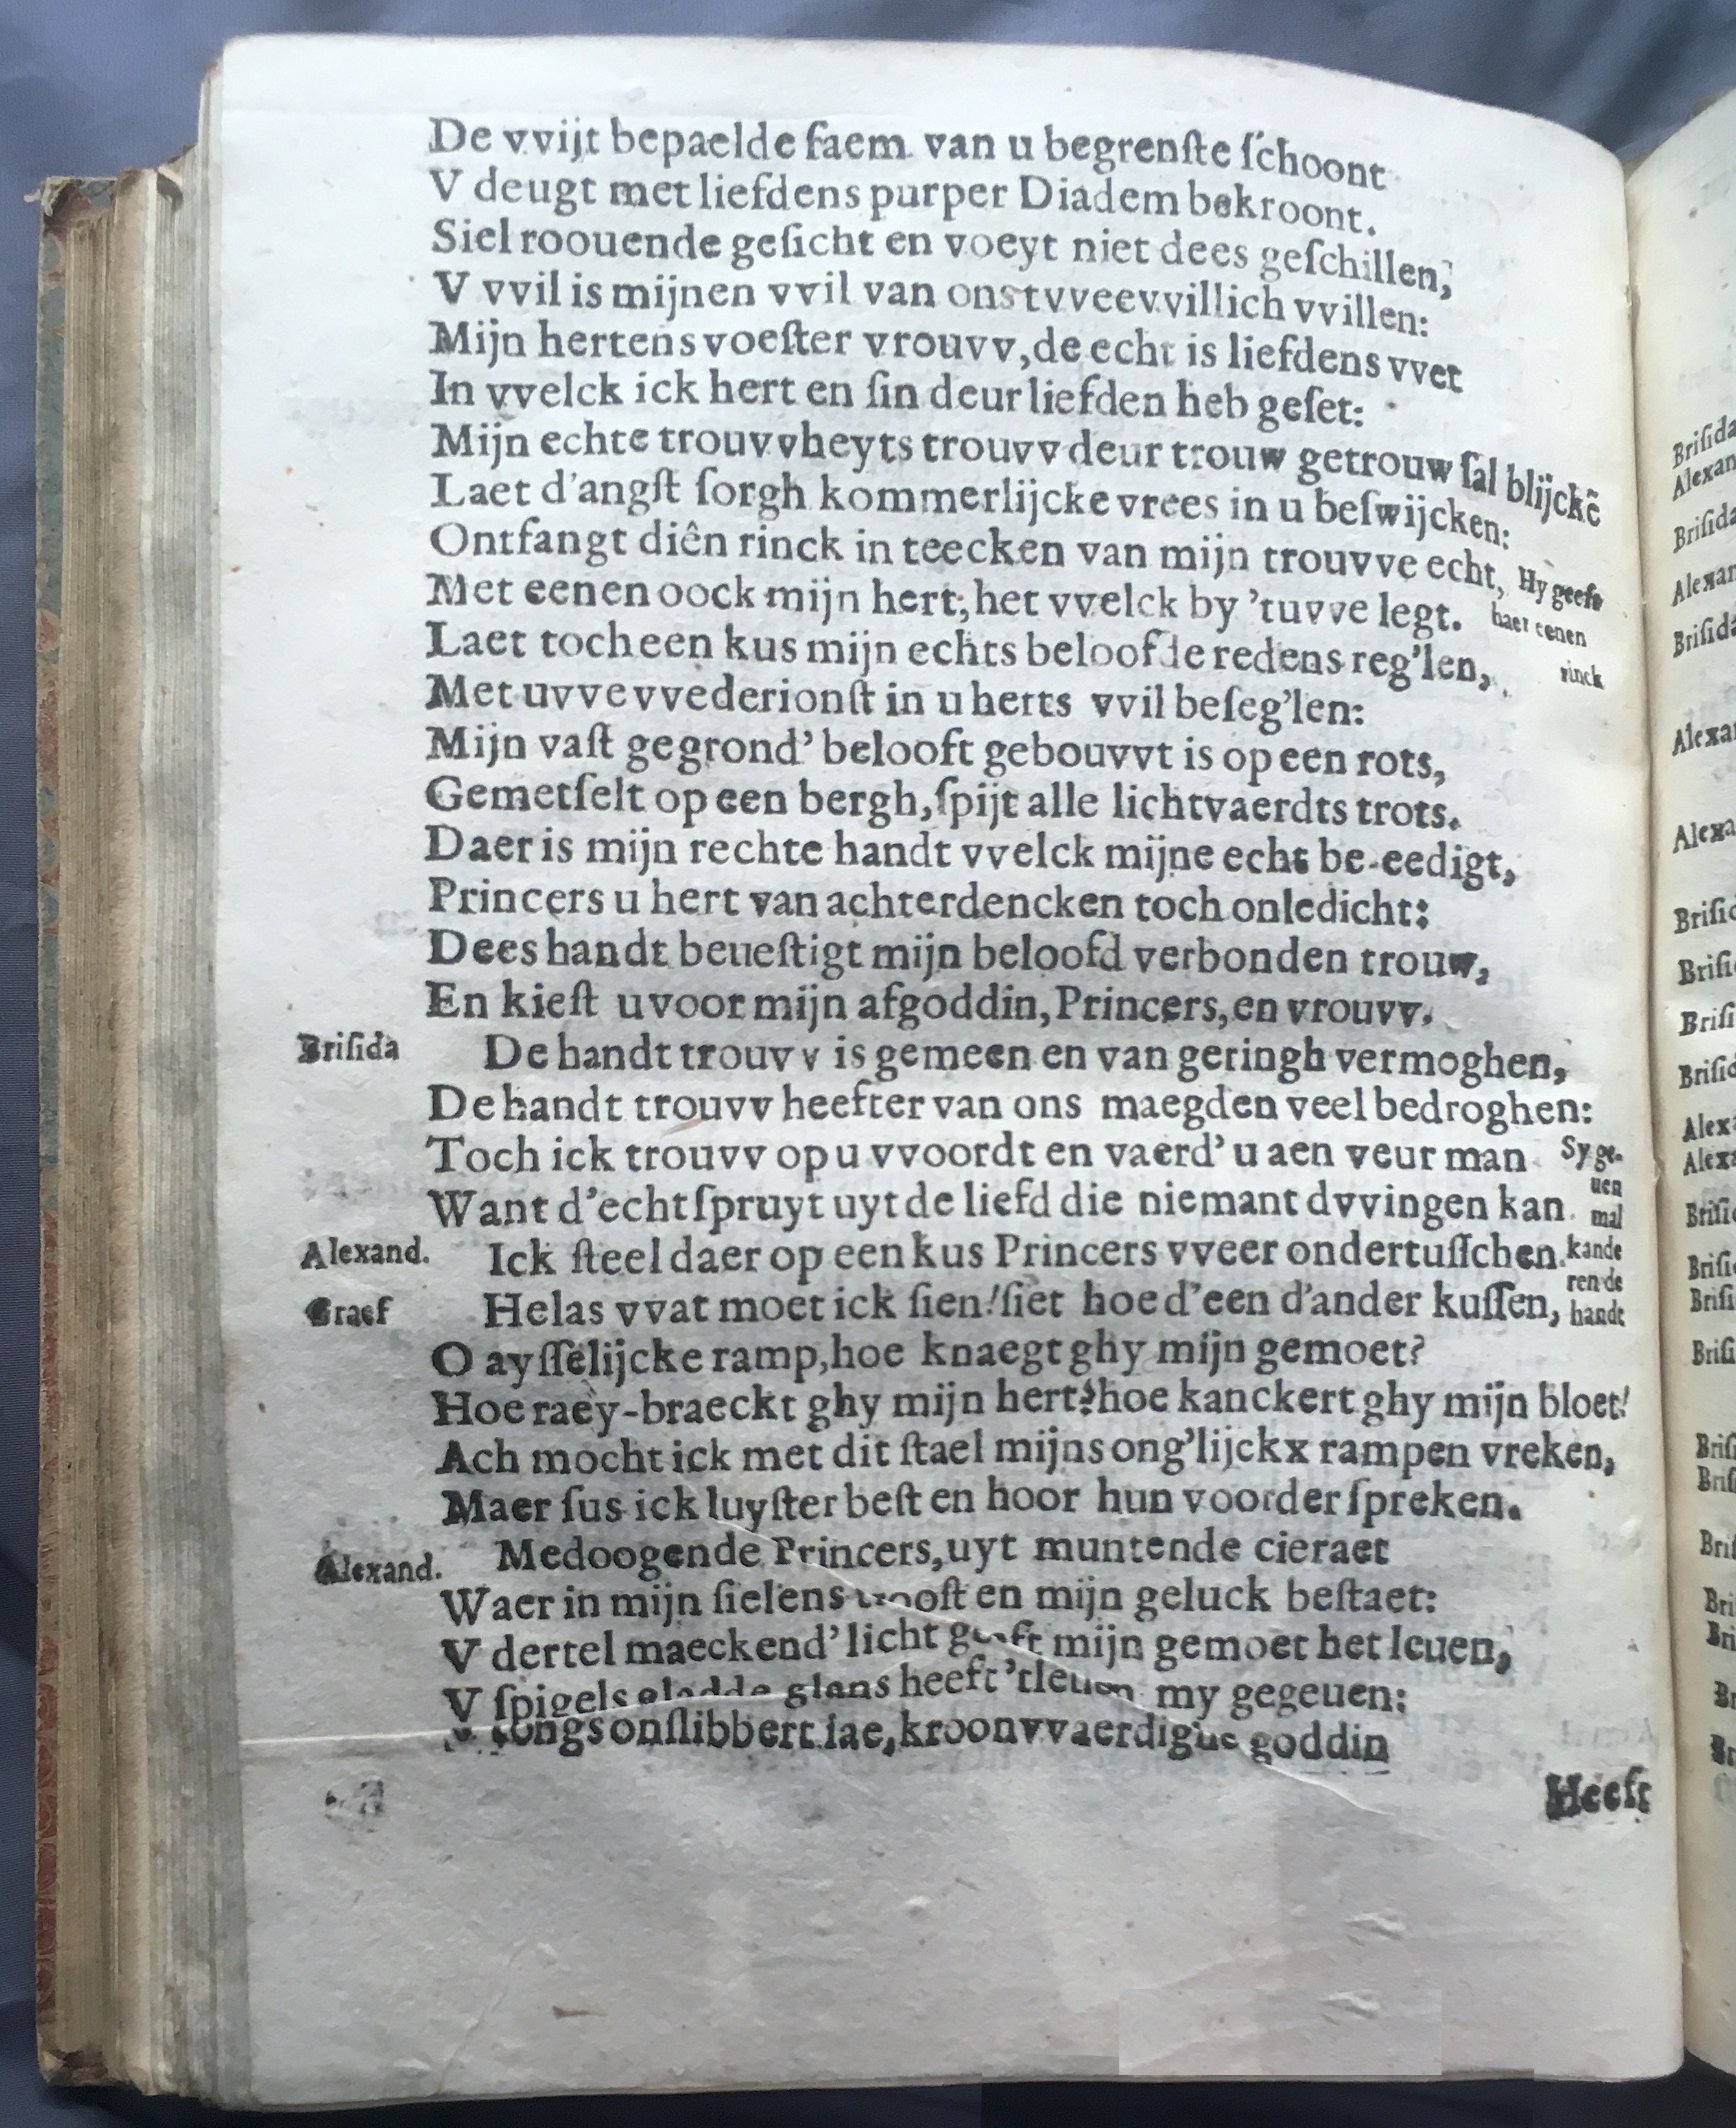 De vvijt bepaelde faem van u begrenſte ſchoont
V deugt met liefdens purper Diadem bekroont.
Siel roouende geſicht en voeyt niet dees geſchillen,
V vvil is mijnen vvil van ons tvvee vvillich vvillen:
Mijn hertens voeſter vrouvv, de echt is liefdens vvet
In vvelck ick hert en ſin deur liefden heb geſet:
Mijn echte trouvvheyts trouvv deur trouw getrouw ſal blijckẽ
Laet d'angſt ſorgh kommerlijcke vrees in u beſwijcken:
Ontfangt diên rinck in teecken van mijn trouvve echt, Hy geeft
Met eenen oock mijn hert, het vvelck by 'tuvve legt. haer eenen
Laet toch een kus mijn echts beloofde redens reg'len, rinck
Met uvve vvederionſt in u herts vvil beſeg'len:
Mijn vaſt gegrond' belooft gebouvvt is op een rots,
Gemetſelt op een bergh, ſpijt alle lichtvaerdts trots.
Daer is mijn rechte handt vvelck mijne echt be-eedigt,
Princers u hert van achterdencken toch onledicht:
Dees handt beueſtigt mijn beloofd verbonden trouw,
En kieſt u voor mijn afgoddin, Princers, en vrouvv.
Briſida De handt trouvv is gemeen en van geringh vermoghen,
De handt trouvv heefter van ons maegden veel bedroghen:
Toch ick trouvv op u vvoordt en vaerd' u aen veur man Sy ge-
uen
Want d'echt ſpruyt uyt de liefd die niemant dvvingen kan. mal
Alexand. Ick ſteel daer op een kus Princers vveer ondertuſſchen. kande
ren de
Graef Helas vvat moet ick ſien! ſiet hoe d'een d'ander kuſſen, handt
O ayſſelijcke ramp, hoe knaegt ghy mijn gemoet?
Hoe raey-braeckt ghy mijn hert? hoe kanckert ghy mijn bloet!
Ach mocht ick met dit ſtael mijns ong'lijckx rampen vreken,
Maer ſus ick luyſter beſt en hoor hun voorder ſpreken.
Alexand. Medoogende Princers, uyt muntende cieraet
Waer in mijn ſielens trooſt en mijn geluck beſtaet:
V dertel maeckend' licht geeft mijn gemoet het leuen,
V ſpigels gladde glans heeft 'tleuen my gegeuen:
tongs onſlibbert iae, kroonvvaerdighe goddin
Heeft